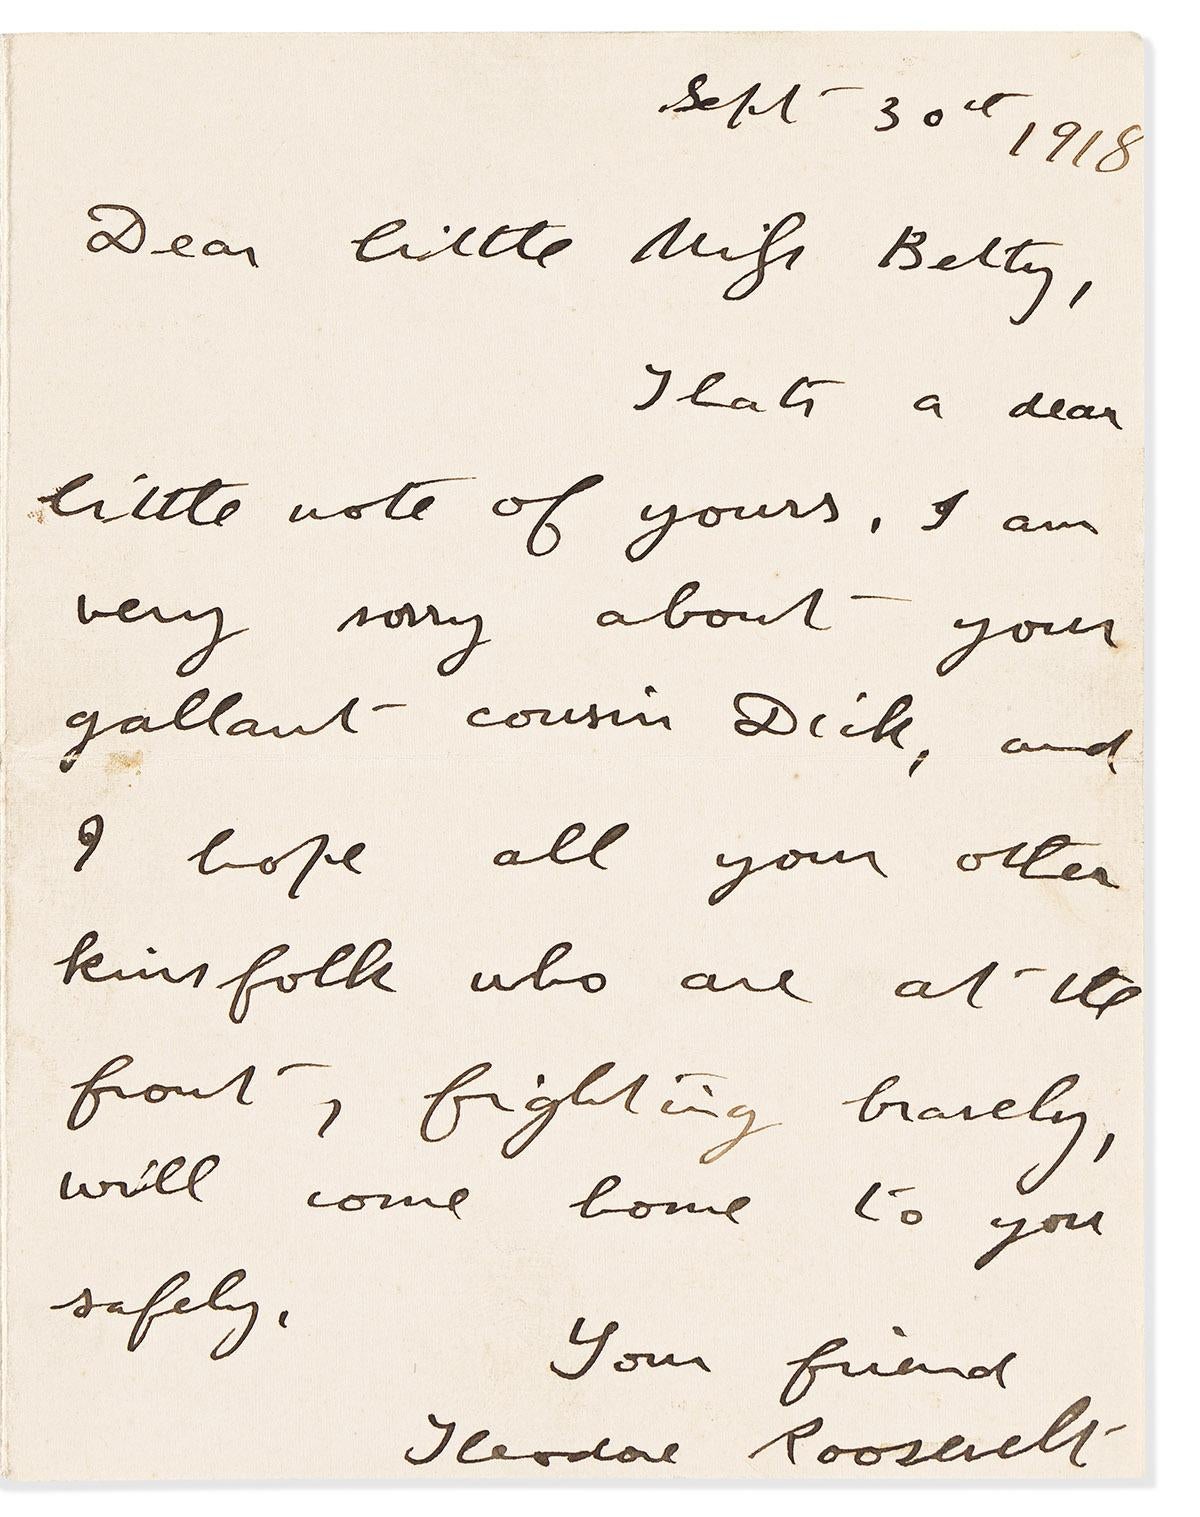 Sept 30th 1918
Dear little Miss Betty,
Thats a dear
little note of yours. I am
very sorry about your
gallant cousin Dick, and
I hope all your other
kinsfolk who are at the
front, fighting bravely,
will come home to you
safely.
Your friend
Theodore Roosevelt